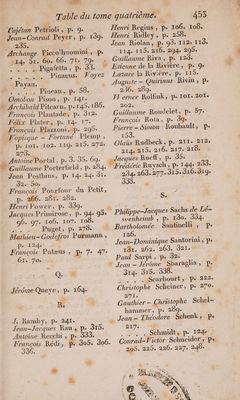 Table du tome quatrième. 453
Cajétan Petrioli, p. 9.
Jean-Conrad Peyer, p. 139.
235.
Archange Piccolhuomini, p.
14. 51. 60. 66. 71. 79.
Pigafetta, p. 33.
Pinæus. Voyez
Payan.
Pineau, p. 58.
Constant Pison, p. 141.
Archibald Pitcarn, p. 145. 186.
François Plantade, p. 312.
Félix Plater, p. 14.
François Plazzoni, p. 295.
Fopisque - Fortuné Plemp,
p. 101. 102. 119. 215. 272.
272.
Antoine Portal, p. 3. 35. 69.
Guillaume Porterfield, p. 284.
Jean Posthius, p. 14. 24. 31.
32. 50.
François Pourfour du Petit,
p. 266. 281. 282.
Henri Power, p. 339.
Jacques Primirose, p. 94. 95.
96. 97. 106. 107. 108.
Puget, p. 278.
Mathieu-Godefroi Purmann,
p. 124.
François Puteus, p. 7. 47.
61. 70.
Q.
Jérôme Queye, p. 164.
R.
J. Ramby, p. 241.
Jean-Jacques Rau, p. 315.
Antoine Recchi, p. 333.
François Rédi, p. 305. 306.
336.
Henri Regius, p. 106. 108.
Henri Ridley, p. 258.
Jean Riolan, p. 95. 112. 113.
114. 115. 216. 294. 295.
Guillaume Riva, p. 123.
Etienne de la Rivière, p. 9.
Lazare la Rivière, p. 113.
Auguste-Quirinus Rivin, p.
236. 289.
Werner Rolfink, p. 101. 201.
202.
Guillaume Rondelet, p. 57.
François Rota, p. 39.
Pierre-Simon Rouhault, p.
153.
Olaüs Rudbeck, p. 211. 212.
214. 215. 216. 217. 218.
Jacques Rueff, p. 35.
Frédéric Ruysch, p. 144. 233.
234. 263. 277. 315. 316. 319.
333.
S.
Philippe-Jacques Sachs de Lé-
wenheimb, p. 130. 334.
Bartholomée Santinelli, p.
126.
Jean-Dominique Santorini, p.
131. 262. 263. 321.
Paul Sarpi, p. 32.
Jean-Jérôme Sbaraglia, p.
314. 315. 338.
Scarbourt, p. 222.
Christophe Scheiner, p. 270.
271.
Gauthier-Christophe Schel-
hammer, p. 289.
Jean-Théodore Schenk, p.
217.
Schmidt, p. 124.
Conrad-Victor Schneider, p.
205. 225. 226. 227. 248.